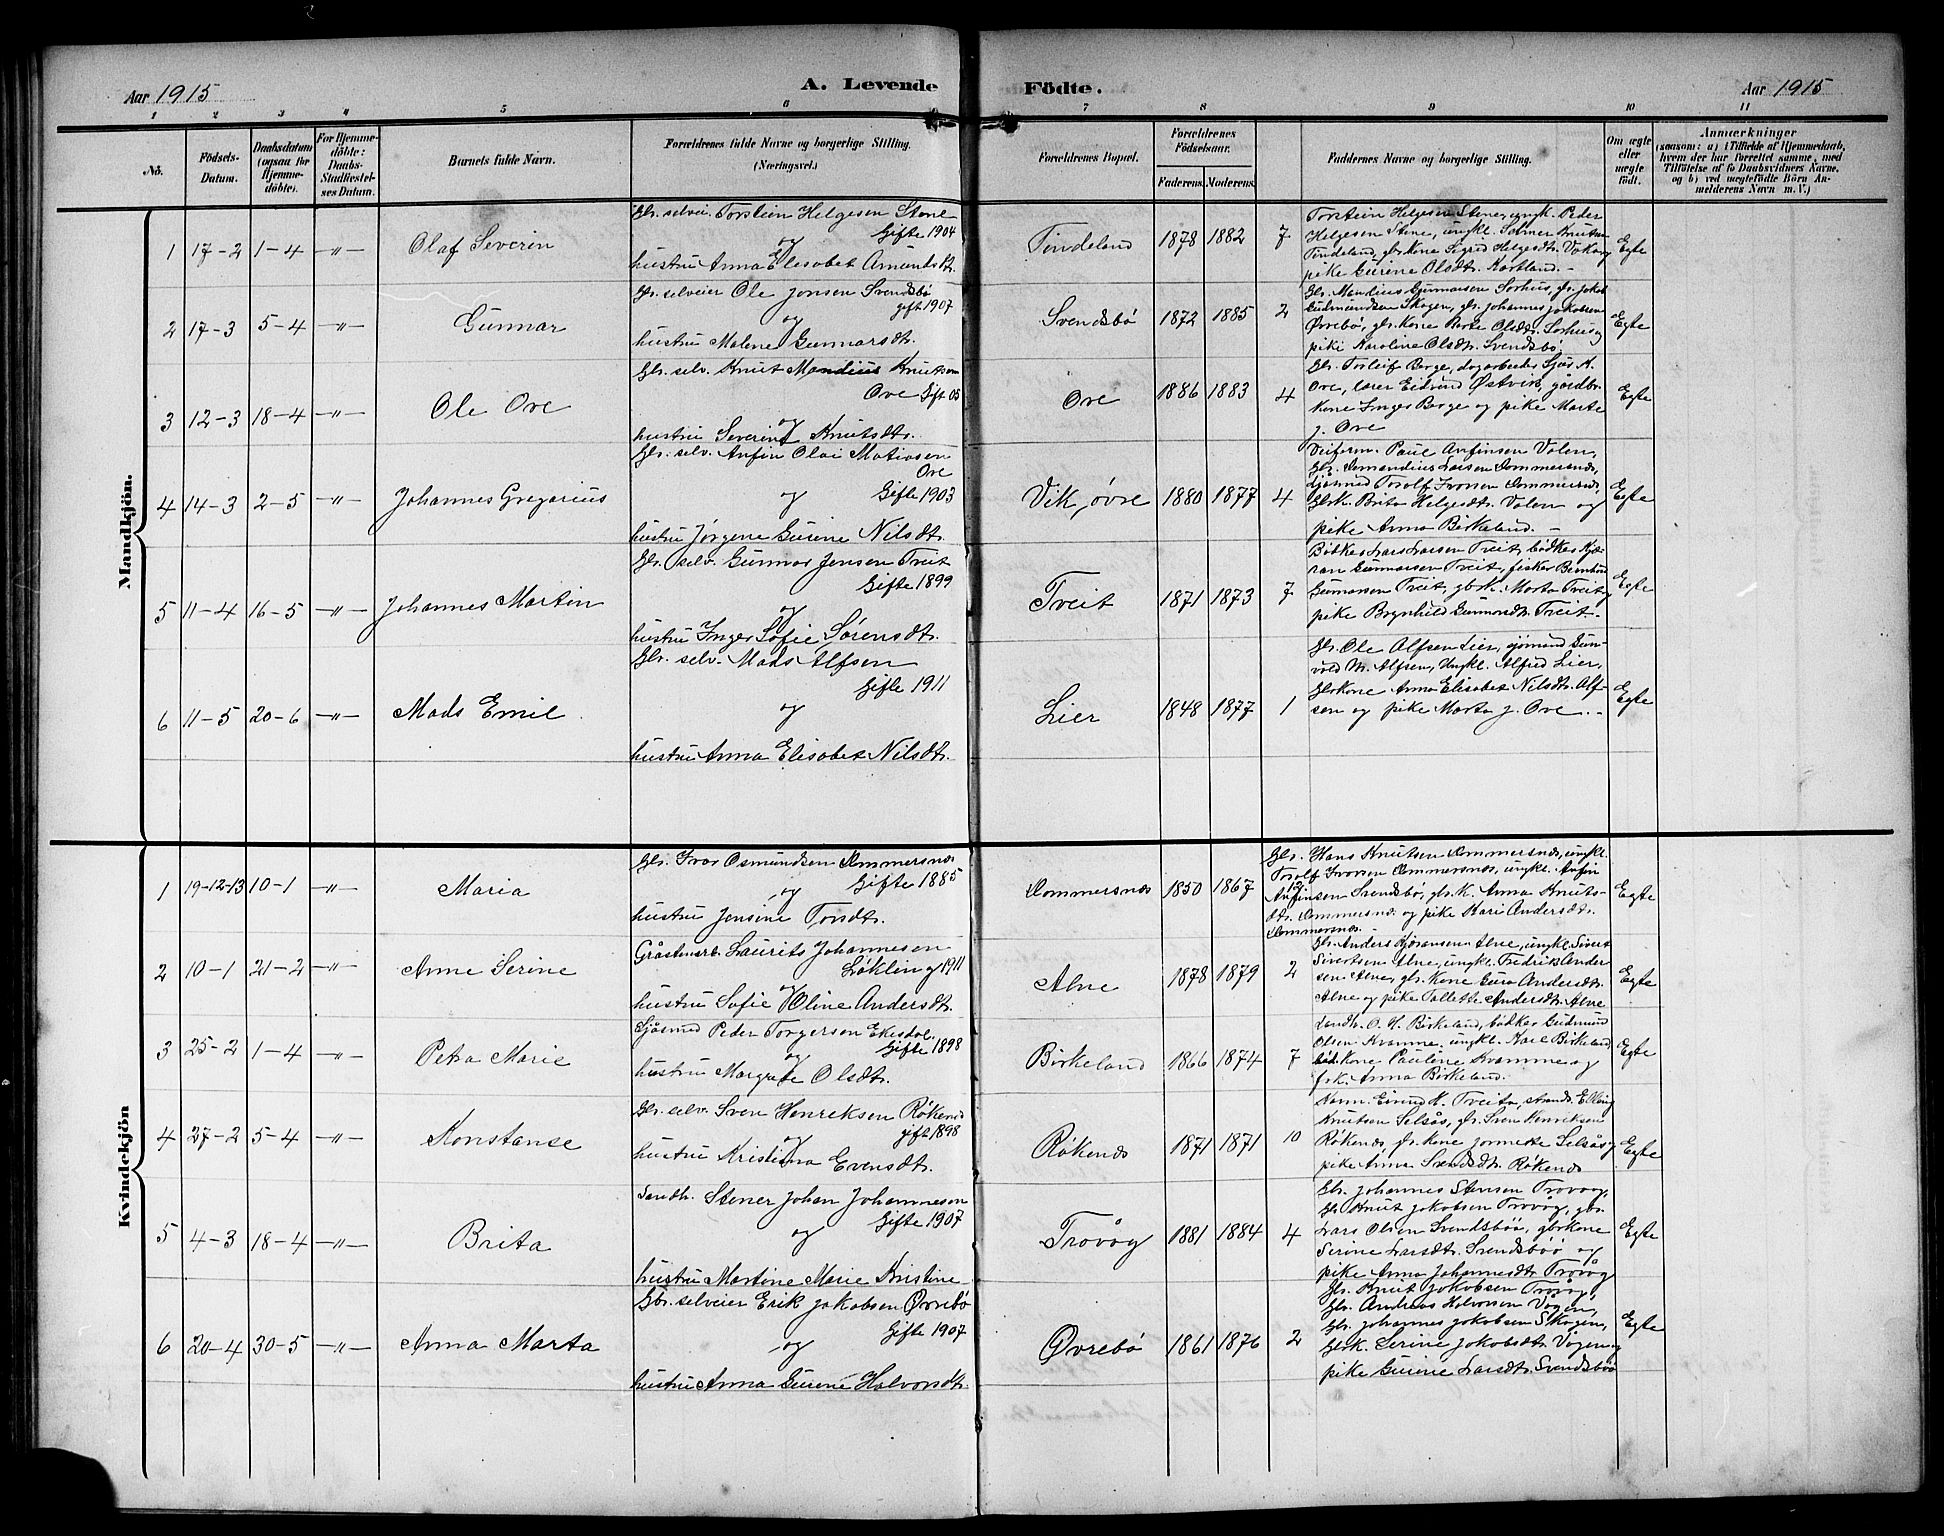 Aar 1915
A. Levende
Födte.
Aar 1915
1 2 3 4 5 6 7 8 9 10 11
No.
Födsels-
Datum.
Daabsdatum
(ogsaa for
Hjemme-
döbte).
For Hjemme-
döbte:
Daabs-
Stadfæstel-
ses Datum.
Barnets fulde Navn.
Forældrenes fulde Navne og borgerlige Stilling.
(Næringsvei.)
Forældrenes Bopæl.
Forældrenes
Födselsaar.
Faderens. Moderens.
Faddernes Navne og borgerlige Stilling.
Om ægte
eller
uægte
födt.
Anmærkninger
(saasom: a) i Tilfælde af Hjemmedaab,
hvem der har forrettet samme, med
Tilföielse af to Daabsvidners Navne,
og b) ved uægtefödte Börn An-
melderens Navn m. V.)
Mandkjön.
1 17-2 1-4 -"- Olaf Severin
Gbr. selvei. Torstein Helgesen Stene
Gifte 1904
og
hustru Anna Elisabet Amundsdt.
Tindeland 1878 1882 7
Torstein Helgesen Stene, ungk. Peder
Helgesen Stene, ungkl. Selmer Knutsen
Tindeland, gbr. kone Sigrid Helgesdt. Vakog
pike Gurine Olsdt. Kartland. -
Egte
2 17-3 5-4 -"- Gunnar
Gbr. selveier Ole Jonsen Svendsbö
gift 1907
og
hustru Malene Gunnarsdt.
Svendsbö 1872 1885 2
Gbr. Mandius Gunnarsen Sörhus, gbr. Jakob
Gudmundsen Skogen, gbr. Johannes Jakobsen
Øvrebö, gbr. kone Berte Olsdt. Sörhus og
pike Karoline Olsdt. Svendsbö
Egte
3 12-3 18-4 -"- Ole Ove
Gbr. selv. Knut Mandius Knutsen
Ove Gift 05
og
hustru Severine Knutsdt.
Ove 1886 1883 4
Gbr. Torleif Berge, dagarbeider Sjur A.
Ove, lærer Eidvind Østvik, gårdbr.
kone Inger Berge og pike Marte
J. Ove
Egte
4 14-3 2-5 -"- Johannes Gregorius
Gbr. selv. Anfin Olai Matiasen
Ove
og Gifte 1903
hustru Jørgene Gurine Nilsdt.
Vik, øvre 1880 1877 4
Paul Anfinsen Valen,
Gbr. Larsen Ommersnes,
Sjømand Torolf Ivarsen Ommersnes,
Gbrk. Brita Helgesdt. Valen og
pike Anna Birkeland. -
Egte
5 11-4 16-5 -"- Johannes Martin
Gbr. selv. Gunnar Jensen Tveit
Gifte 1899
og
hustru Inger Sofie Sørensdt.
Tveit 1871 1873 7
Bødker Lars Larsen Tveit, bødker Kjø-
ran Gunnarsen Tveit, fisker Bernhard
Gunnarsen Tveit, gbrk. Marta Tveit og
pike Brynhild Gunnarsdt. Tveit. -
Egte
6 11-5 20-6 -"- Mads Emil
Gbr. selv. Mads Alfsen
Gifte 1911
og
hustru Anna Elisabet Nilsdt.
Lier 1848 1877 1
Gbr. Ole Alfsen Lier, sjømand Gun-
vald M. Alfsen, Ungkl. Alfred Lier,
Gbrkone Anna Elisabet Nilsdt. Alf-
sen og pike Marta J. Ove. -
Egte
Kvindekjön
1 19-12-13 10-1 -"- Maria
Gbr. Ivar Osmundsen Ommersnes
og Gifte 1885
hustru Jensine Torsdt.
Ommersnes 1850 1867 12
Gbr. Hans Knutsen Ommersnes, ungkl.
Torolf Ivarsen Ommersnes, ungkl. Anfin
Anfinsen Svendsbö, gbr. k. Anna Knuts-
dt. Ommersnes og pike Kari Andersdt.
Ommersnes.
Egte
2 10-1 21-2 -"- Anne Serine
Gråstensarb. Laurits Johannesen
Løkling 1911
og
hustru Sofie Oline Andersdt.
Alne 1878 1879 2
Gbr. Anders Kjøransen Alne, ungkl. Sivert
Sivertsen Alne, ungkl. Fredrik Ander
sen Alne, gbr. kone Guro Andersdt.
Alne og pike Tallette Andersdt. Alne
Egte
3 25-2 1-4 -"- Petra Marie
Sjøsmed Peder Torgersen Ekesdal
og Gifte 1898
hustru Margrete Olsdt.
Birkeland 1866 1874 7
Landh. O. H. Birkeland, bødker Gudmund
Olsen Kvamme, ungkl. Karl Birkeland
kone Pauline Kvamme og
frk. Anna Birkeland.
Egte
4 27-2 5-4 -"- Konstanse
Gbr. selv. Sven Henriksen Røkenes
og gift 1898
hustru Kristina Evensdt.
Røkenes 1871 1871 10
Eivind K. Tveita, strands. Elling
Knutsen Selsås, gbr. Sven Henriksen
Røkenes, gbr. kone Jornette Selsås og
pike Anna Svendsdt. Røkenes
Egte
5 4-3 18-4 -"- Brita
Landh. Stener Johan Johannesen
Gifte 1907
og
hustru Martine Marie Kristine
Trovåg 1881 1884 4
Gbr. Johannes Stensen Trovåg,
Gbr. Knut Jakobsen Trovåg, gbr.
Lars Olsen Svendsböe, gbr. kone
Serine Larsdt. Svendsböe og
pike Anna Johannesdt. Trovåg
Egte
6 20-4 30-5 -"- Anna Marta
Gbr. selveier Erik Jakobsen Øvrebö
Gifte 1907
og
hustru Anna Gurine Halvorsdt.
Øvrebö 1861 1876 2
Gbr. Knut Jakobsen Trovåg,
Gbr. Andreas Halvorsen Vågen,
Gbr. Johannes Jakobsen Skogen,
Gbrk. Serine Jakobsdt. Vågen og
pike Gurine Larsdt. Svendsböe
Egte